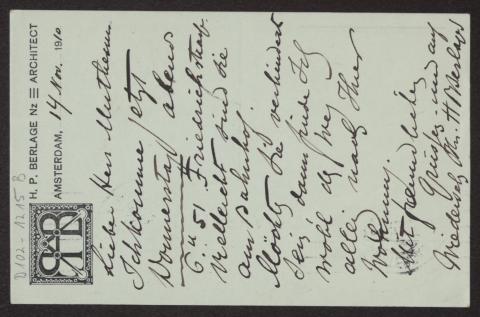 H. P. BERLAGE Nz ☰ ARCHITECT
AMSTERDAM, 14 Nov. 1910
Lieber Herr Muthesius
Ich komme jetzt
Donnerstag abend
6 u 51 Friedrichstraße.
Vielleicht sind Sie
am Bahnhof.
Möchten Sie verhindert
sein, dann finde ich
wohl den Weg
allein nach Ihrer
Wohnung.
Mit freundlichen
Grüßen und auf
Wiedersehn Ihr HPBerlage
D 102-1215 B